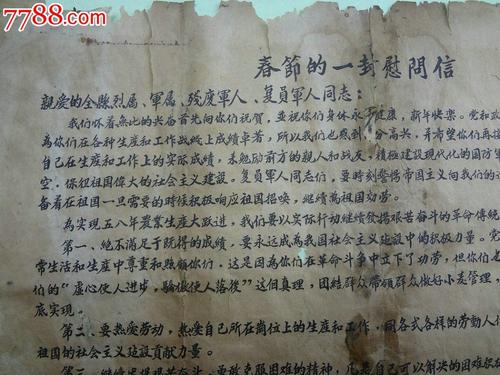 7788.com
春節的一封慰問信
親爱的全縣烈属、軍属、残废軍人、复員軍人同志：
我们怀着無比的兴奋首先向你们祝賀，並祝你们身休永 健康，新年快楽。党和政
為你们在各种生産和工作战綫上成績卓著，所以我们也感到十分高兴，并希望你们再接
自己在生産和工作上的实际成績，来勉励前方的親人和战友，積極建設現代化的国防軍
空。你们祖国偉大的社会主义建設。复員軍人同志们，要時刻警惕帝国主义向我们的进
备着在祖国一旦需要的時候积极响应祖国招喚，継續為祖国効劳。
為实現五八年農業生産大跃进，我们要以实际行动継續發揚艰苦奋斗的革命傳統
第一、絶不滿足于既得的成績，要永远成為我国社会主义建設中的积极力量。党
常生活和生産中尊重和照顧你们，这是因為你们在革命斗争中立下了功劳，但你们也
怕的“虚心使人进步，驕傲使人落後”这個真理，団結群众帯領群众做好小麦管理，
底实現。
第二、要热爱劳动，热爱自己所在崗位上的生産和工作，同各式各样的劳動人
祖国的社会主义建設貢献力量。
第三、継續发揚艰苦 勇敢克服困难的精神，凡是自己可以解决的困难积